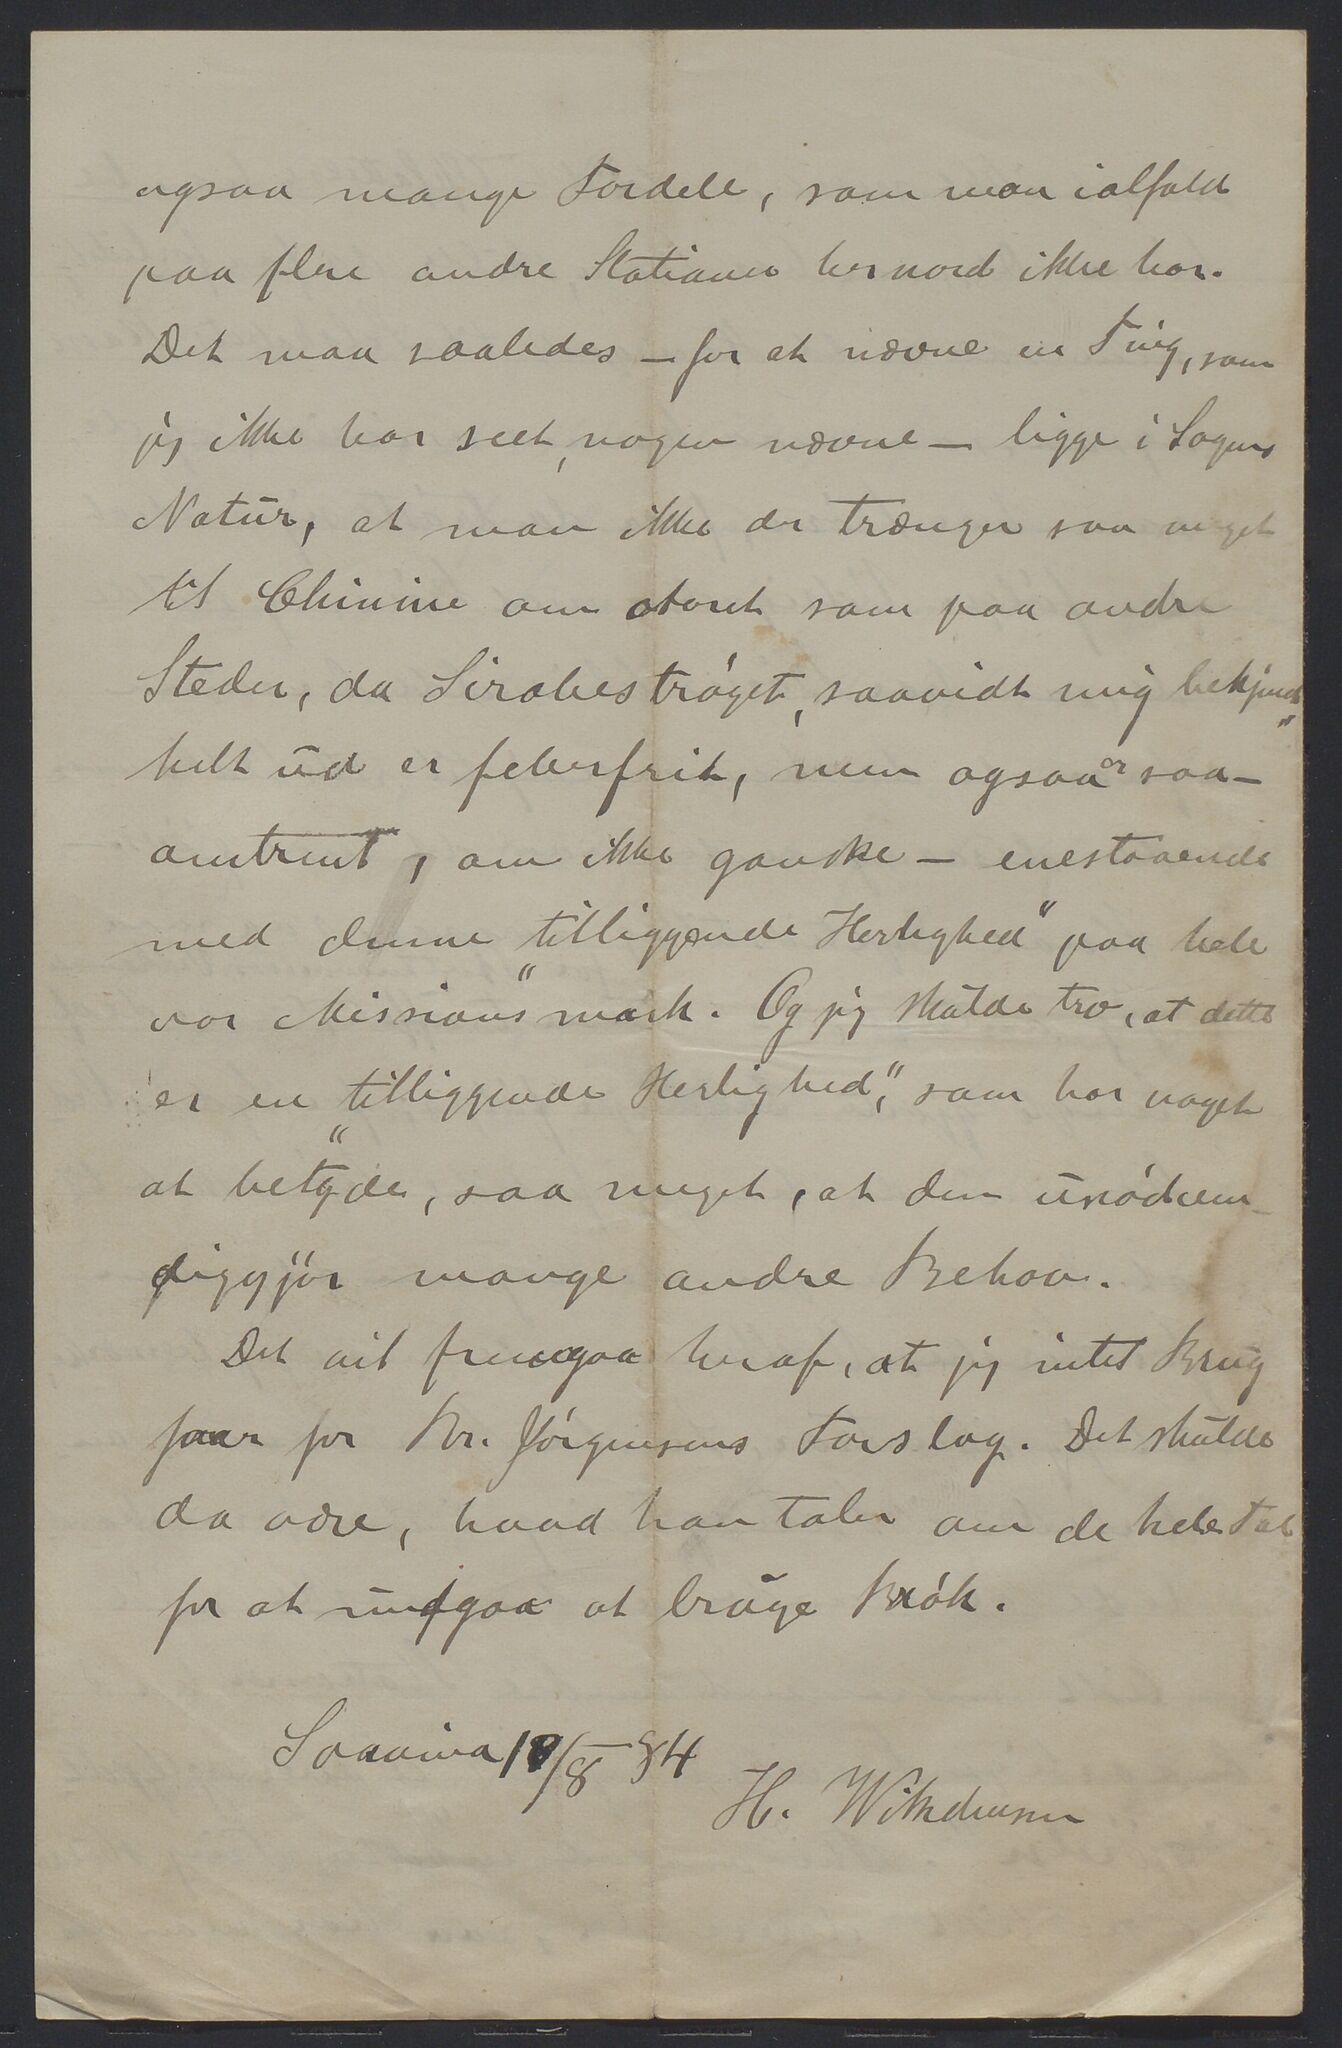 ogsaa mange Fordele, som man ialfald
paa flere andre Stationer her nord ikke har.
Det maa saaledes — for at nævne en Ting, som
jeg ikke har seet nogen nævne — ligge i Sagens
Natur, at man ikke der trænger saa meget
til Chinine om Aaret som paa andre
Steder, da Sirabestrøget, saavidt mig bekjendt
helt ud er feberfrit, men ogsaa er saa-
omtrent, om ikke ganske — enestaaende
med denne "tilliggende Herlighed" paa hele
vor Missionsmark. Og jeg skulde tro, at dette
er en "tilliggende Herlighed", som har noget
at betyde, saa meget, at den unødven-
diggjør mange andre Behov.
Det vil fremgaa heraf, at jeg intet Brug
faar for Br. Jörgensens Forslag. Det skulde
da være, hvad han taler om de hele Tal
for at undgaa at bruge Brök.
Soavina 18/8 84
H.